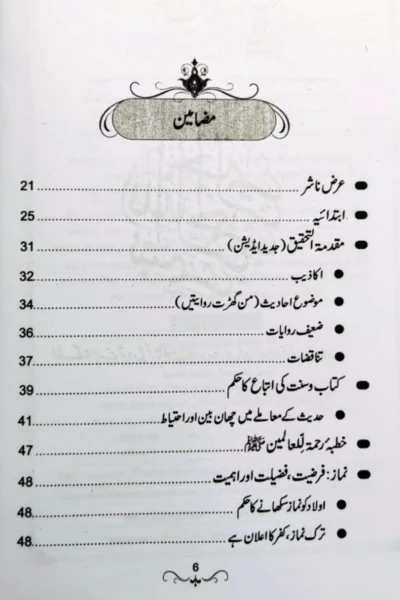 مضامین
عرض ناشر 21
ابتدائیہ 25
مقدمۃ التحقیق (جدید ایڈیشن) 31
اکاذیب 32
موضوع احادیث (من گھڑت روایتیں) 34
ضعیف روایات 36
تناقضات 37
کتاب و سنت کی اتباع کا حکم 39
حدیث کے معاملے میں چھان بین اور احتیاط 41
خطبۂ رحمۃ للعالمین ﷺ 47
نماز: فرضیت، فضیلت اور اہمیت 48
اولاد کو نماز سکھانے کا حکم 48
ترک نماز، کفر کا اعلان ہے 48
6